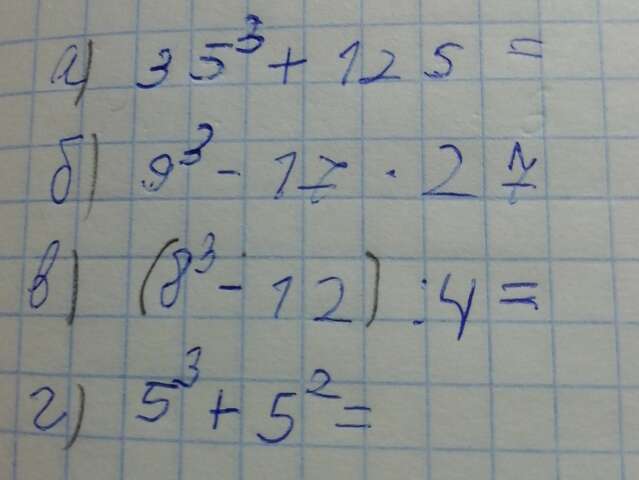 а) 35³ + 125 =
б) 9³ - 17 · 27
в) (8³ - 12) : 4 =
г) 5³ + 5² =